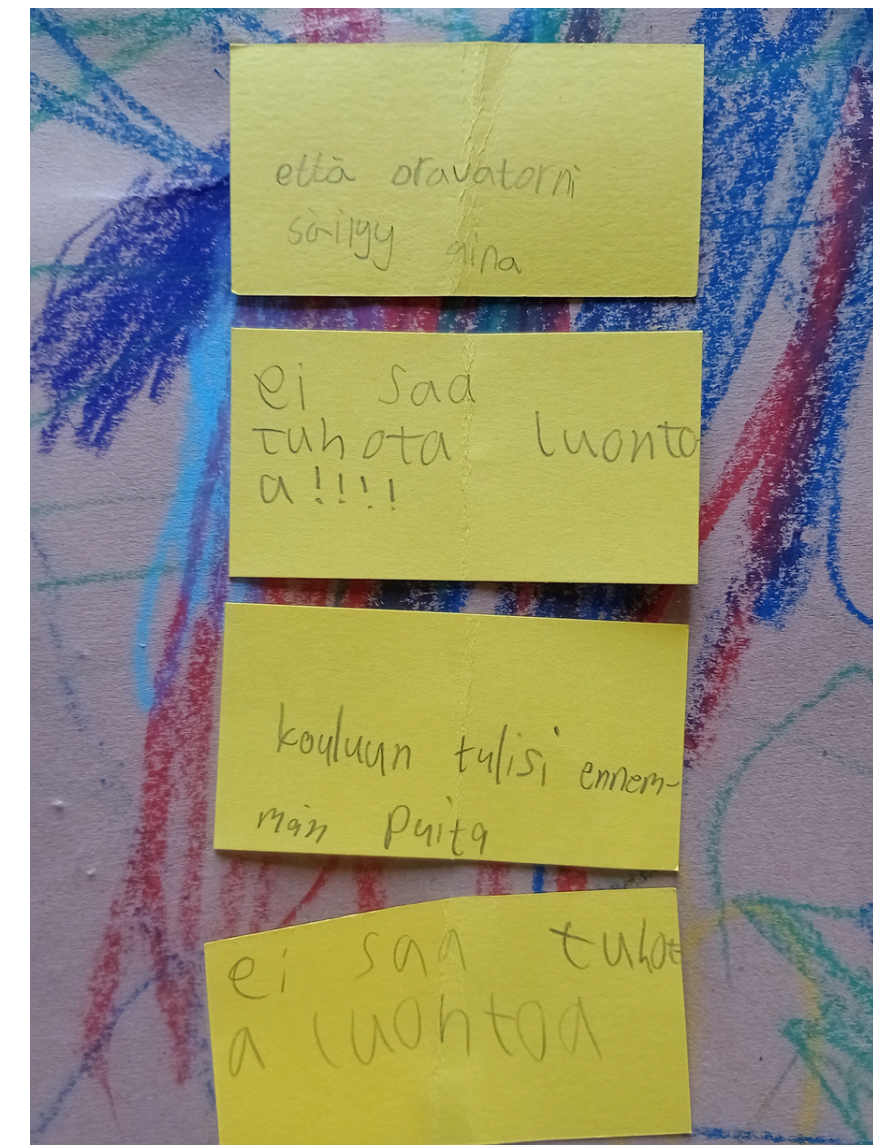 että oravatorni
säilyy aina
ei saa
tuhota luonto
a!!!!
kouluun tulisi ennem-
män puita
ei saa tuhot
a luontoa